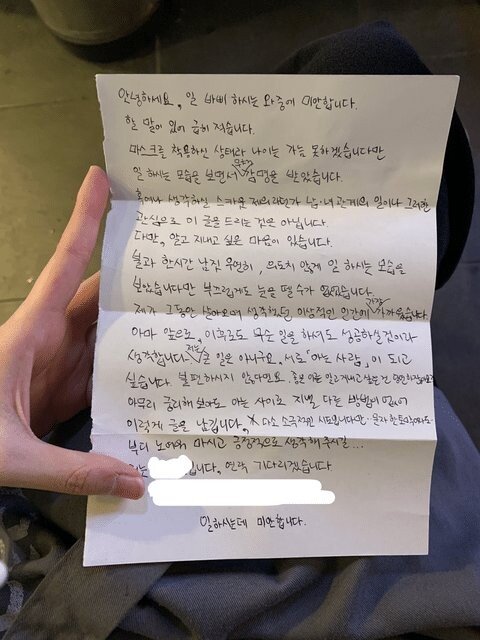 안녕하세요, 일 바삐 하시는 와중에 미안합니다.
할 말이 있어 급히 적습니다.
마스크를 착용하신 상태라 나이는 가늠 못하겠습니다만
일 하시는 모습을 보면서 감명을 받았습니다.
혹여나 생각하실 스카웃 제의라던가 남·녀 관계의 일이나 그러한
관심으로 이 글을 드리는 것은 아닙니다.
다만, 알고 지내고 싶은 마음이 있습니다.
불과 한시간 남짓 우연히, 의도치 않게 일 하시는 모습을
보았습니다만 부끄럽게도 눈을 뗄 수가 없었습니다.
제가 그동안 살아오며 생각했던 이상적인 인간에 가장 가까웠습니다.
아마 앞으로, 이후로도 무슨 일을 하셔도 성공하실 것이라
생각합니다. 저는 큰 일은 아니구요, 서로 "아는 사람"이 되고
싶습니다. 불편하시지 않다면요.
아무리 궁리해 보아도 아는 사이로 지낼 다른 방법이 없어
이렇게 글을 남깁니다. * 다소 소극적인 시도입니다만
부디 노여워 마시고 긍정적으로 생각해 주시길...
입니다, 연락 기다리겠습니다.
일하시는데 미안합니다.